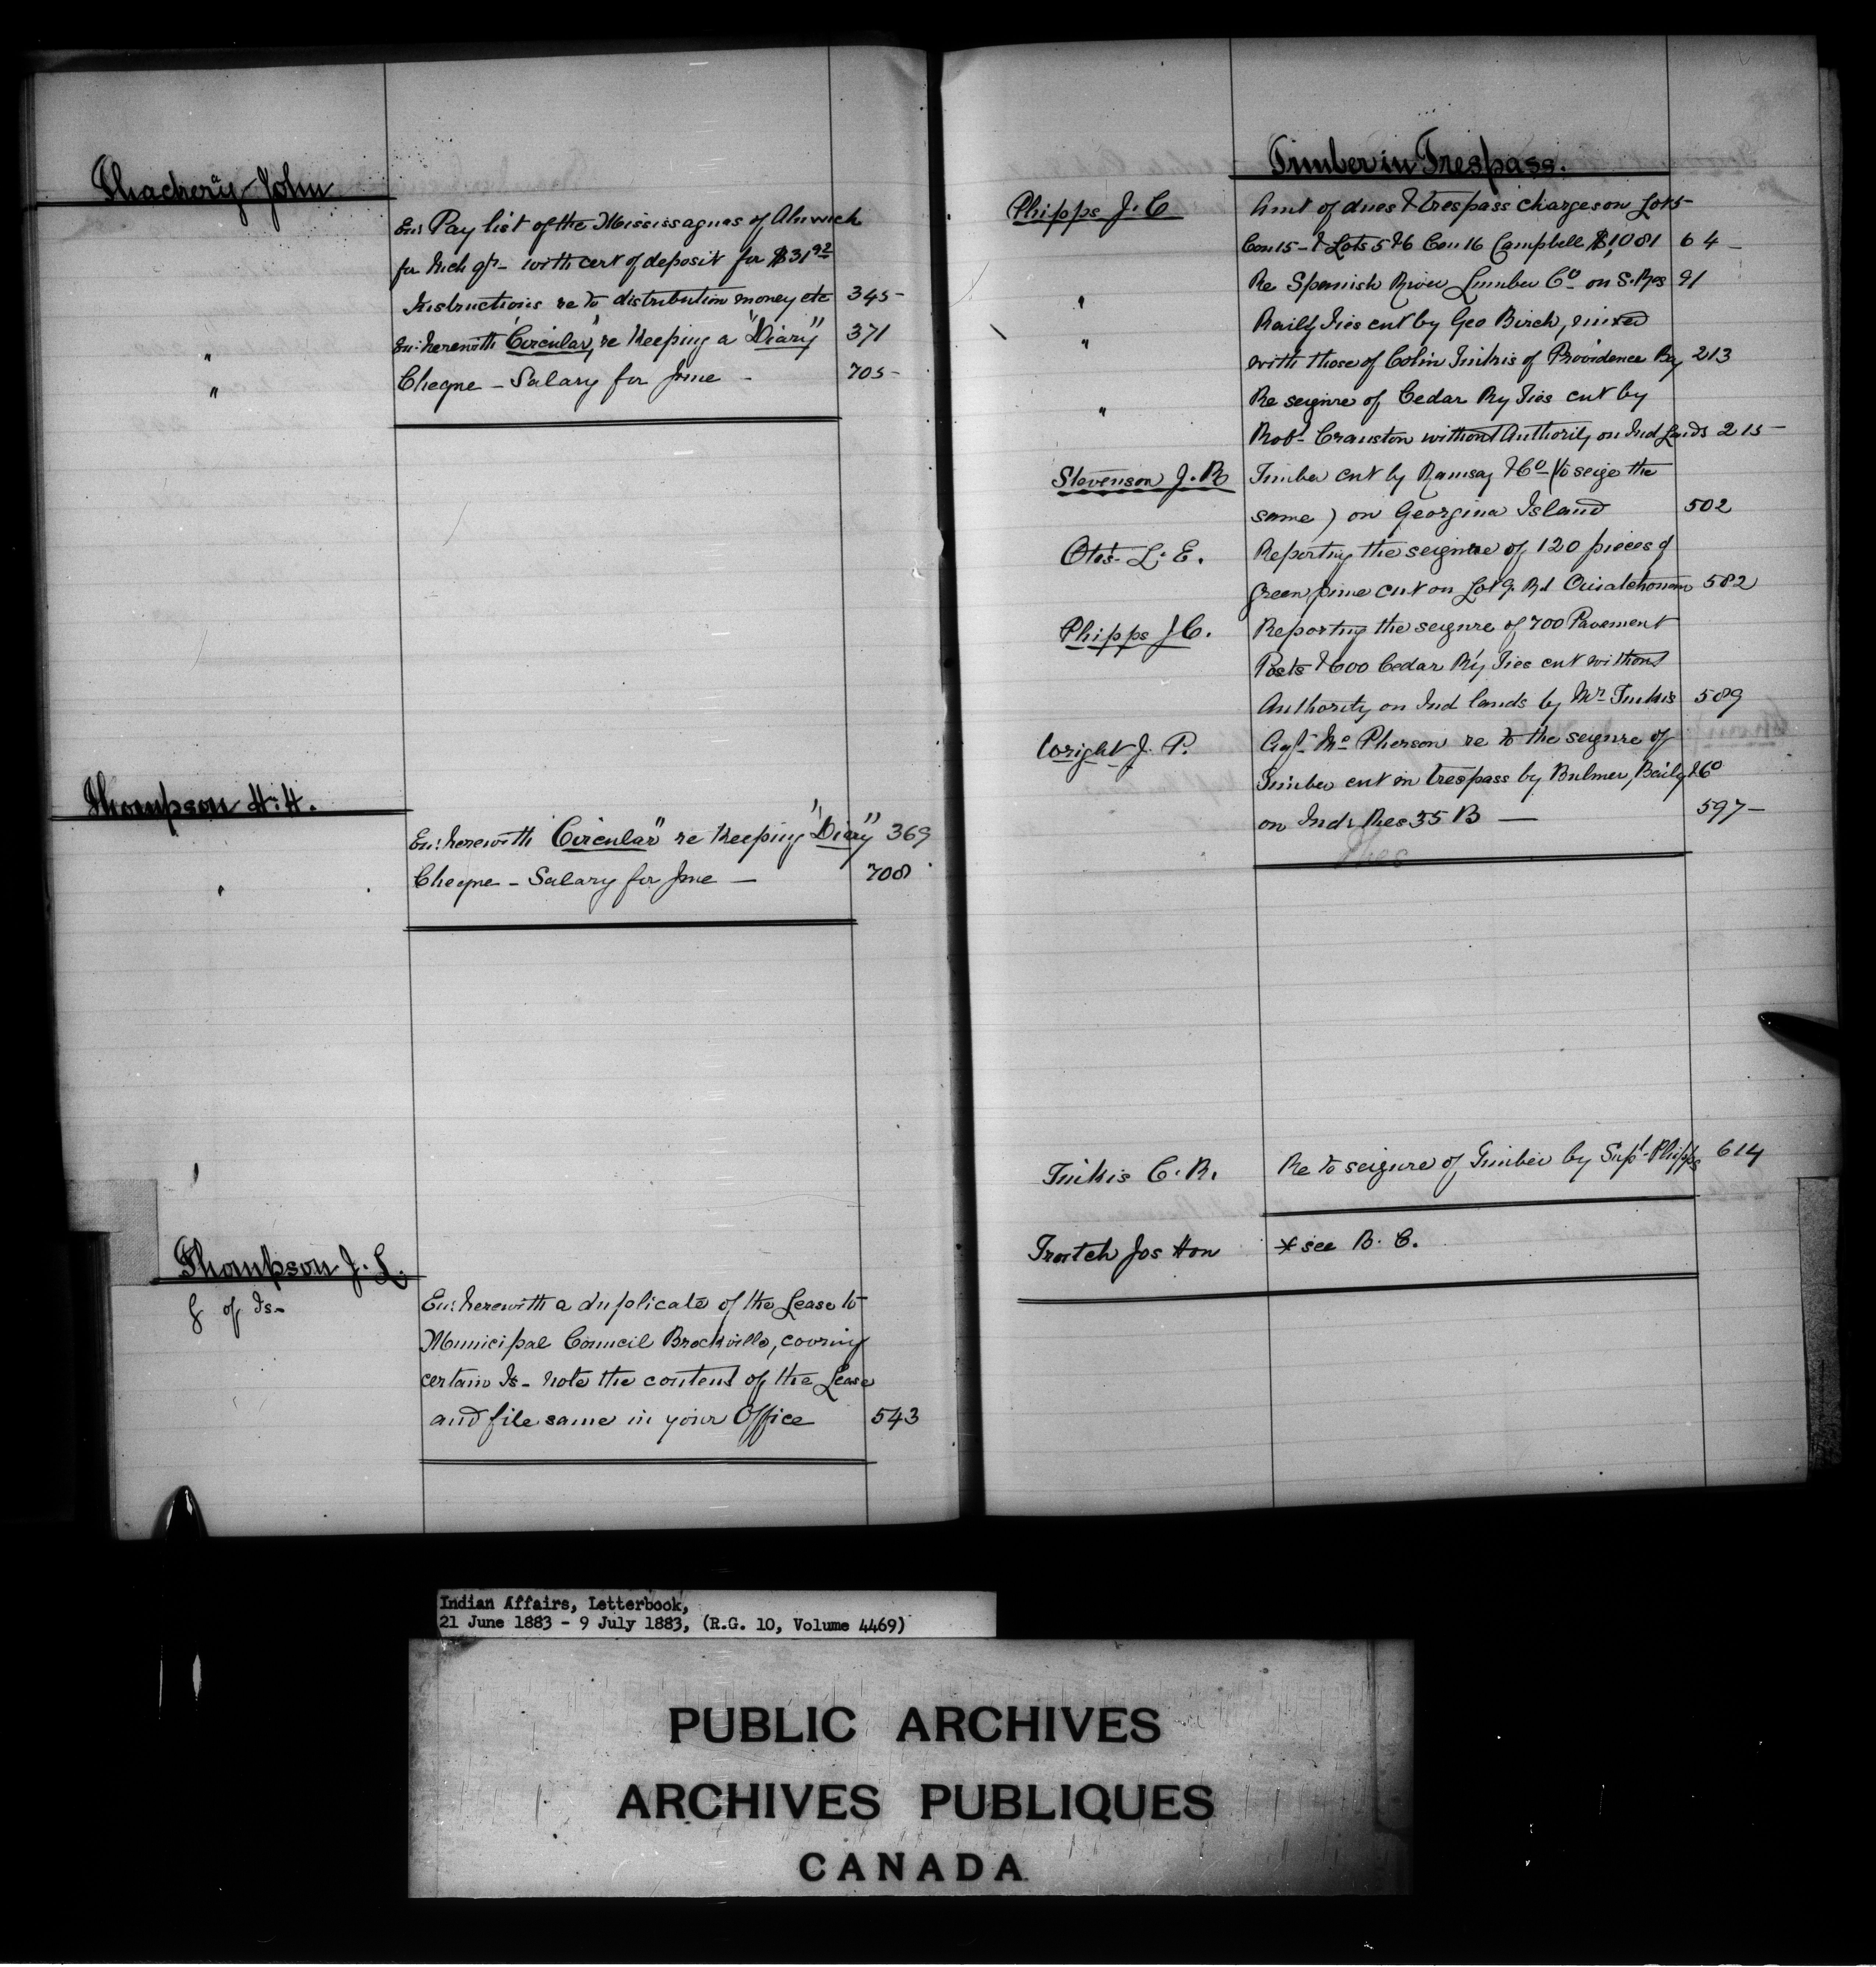 Thackery John
Enc Pay list of the Mississaguas of Alnwick
for Mich qr - with cert of deposit for $31.92
Instructions re to distribution money etc 345-
" Enc: herewith "Circular" re Keeping a "Diary" 371
" Cheque - Salary for June - 705-
Thompson H. H.
Enc: herewith "Circular" re Keeping "Diary" 369
" Cheque - Salary for June - 708
Thompson J. L.
of Is-
Enc: herewith a duplicate of the Lease to
Municipal Council Brockville, covring
certain Is - note the content of the Lease
and file same in your Office 543
Timber in Trespass.
Phipps J. C Amt of dues & trespass charges on Lot 5-
Con 15 - & Lots 5 & 6 Con 16 Campbell $1,081 64-
" Re Spanish River Lumber Co on S. Res 91
" Raily Ties cut by Geo Birch, mixed
with those of Colin Inkis of Providence Bay 213
" Re seizure of Cedar Ry Ties cut by
Robt Cranston without Authority on Ind Lands 215-
Stevenson J. R Timber cut by Ramsay & Co (to seize the
same) on Georgina Island 502
Otis L. E. Reporting the seizure of 120 pieces of
green pine cut on Lot 9 Rd Ouiatchouan 582
Phipps J C. Reporting the seizure of 700 Pavement
Posts & 600 Cedar R'y Ties cut without
Authority on Ind lands by Mr Inkis 589
Wright J. P. Agt McPherson re to the seizure of
Timber cut in trespass by Bulmer, Baily & Co
on Ind: Res 35 B - 597-
C. R. Re to seizure of Timber by Supt Phipps 614
Trutch Jos Hon * see B. C.
Indian Affairs, Letterbook,
21 June 1883 - 9 July 1883, (R.G. 10, Volume 4469)
PUBLIC ARCHIVES
ARCHIVES PUBLIQUES
CANADA